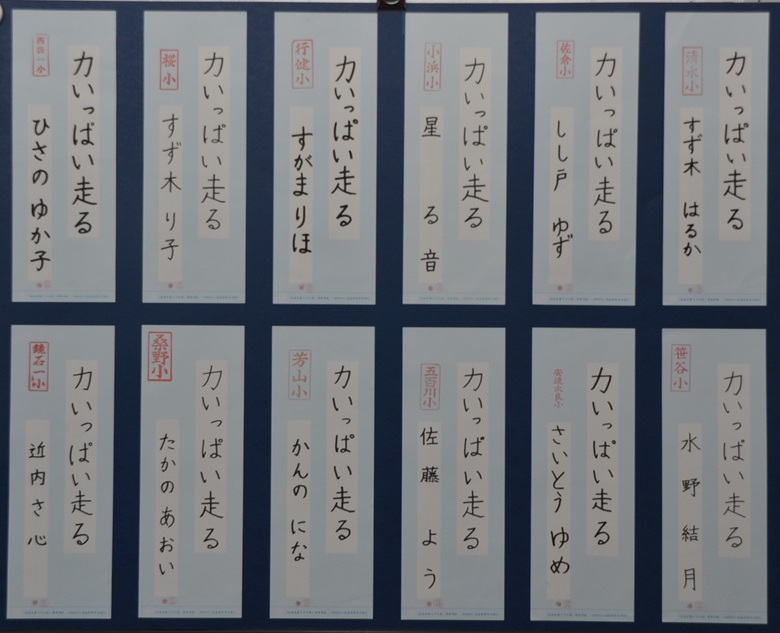 力いっぱい走る
清水小
すず木 はるか
力いっぱい走る
佐倉小
しし戸 ゆず
力いっぱい走る
小浜小
星 る音
力いっぱい走る
行健小
すがまりほ
力いっぱい走る
桜小
すず木 り子
力いっぱい走る
ひさの ゆか子
力いっぱい走る
笹谷小
水野結月
力いっぱい走る
さいとう ゆめ
力いっぱい走る
五百川小
佐藤 よう
力いっぱい走る
芳山小
かんの にな
力いっぱい走る
桑野小
たかの あおい
力いっぱい走る
鏡石一小
近内さ心